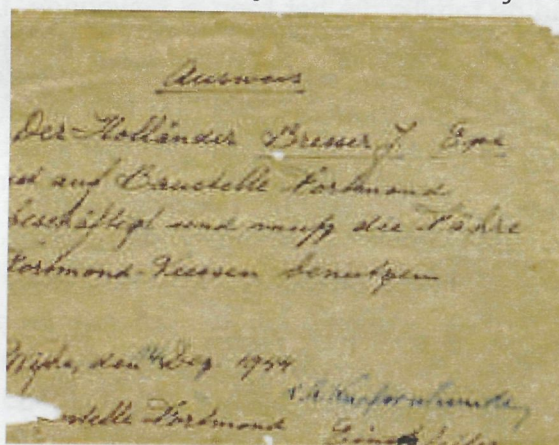 Ausweis
Der Holländer Bresser J. Epe
ist auf Baustelle Fortmond
beschäftigt und muß die Fähre
Fortmond-Veessen benutzen
Wijhe, den 14 Dez. 1944
stelle Fortmond